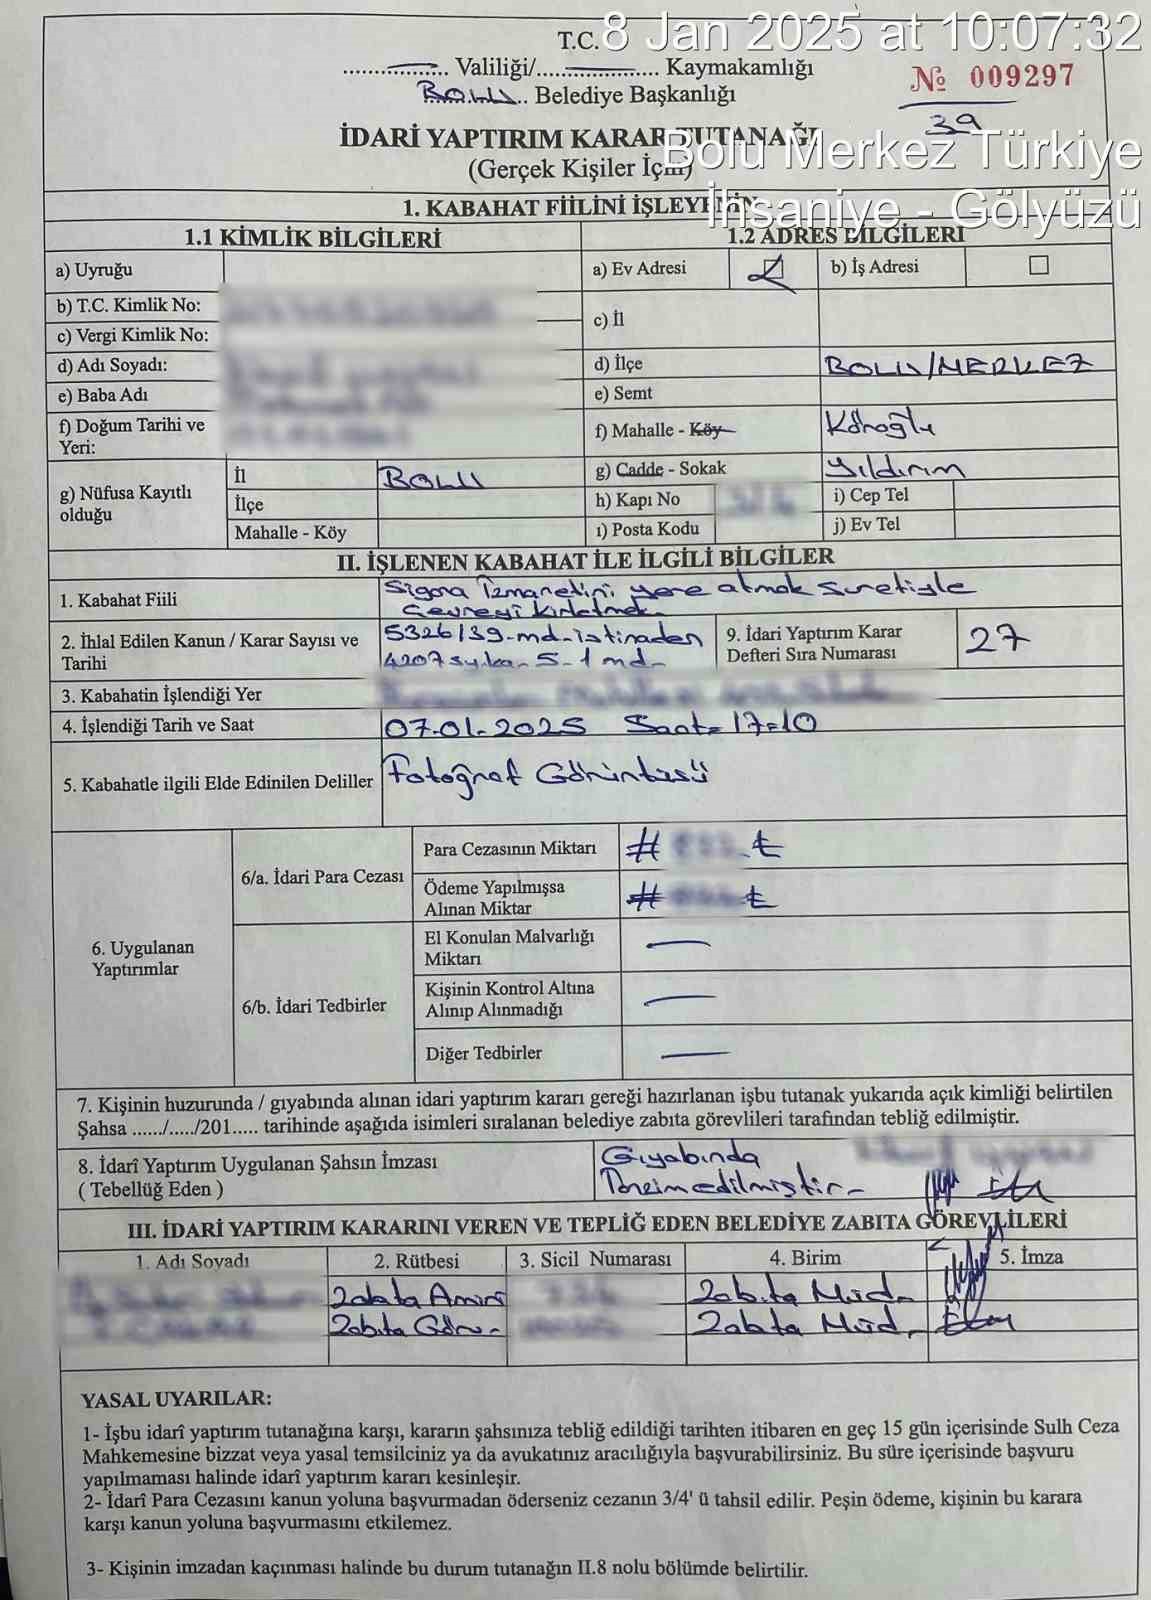 8 Jan 2025 at 10:07:32
Bolu Merkez Türkiye
İhsaniye - Gölyüzü
T.C.
............... Valiliği/.................... Kaymakamlığı
№ 009297
BOLU.. Belediye Başkanlığı
39
İDARİ YAPTIRIM KARAR TUTANAĞI
(Gerçek Kişiler İçin)
1. KABAHAT FİİLİNİ İŞLEYENİN
1.1 KİMLİK BİLGİLERİ
1.2 ADRES BİLGİLERİ
a) Uyruğu
a) Ev Adresi
b) İş Adresi
b) T.C. Kimlik No:
c) Vergi Kimlik No:
c) İl
d) Adı Soyadı:
d) İlçe BOLU/MERKEZ
e) Baba Adı
e) Semt
f) Doğum Tarihi ve
Yeri:
f) Mahalle - Köy Köroğlu
g) Nüfusa Kayıtlı
olduğu
İl BOLU
İlçe
Mahalle - Köy
g) Cadde - Sokak Yıldırım
h) Kapı No
i) Cep Tel
ı) Posta Kodu
j) Ev Tel
II. İŞLENEN KABAHAT İLE İLGİLİ BİLGİLER
1. Kabahat Fiili
Sigara İzmaretini yere atmak suretiyle
Çevreyi kirletmek.
2. İhlal Edilen Kanun / Karar Sayısı ve
Tarihi
5326/39-md-istinaden
4207 sy.ka-5-1 md-
9. İdari Yaptırım Karar
Defteri Sıra Numarası
27
3. Kabahatin İşlendiği Yer
4. İşlendiği Tarih ve Saat
07.01.2025 Saat- 17-10
5. Kabahatle ilgili Elde Edinilen Deliller
Fotoğraf Görüntüsü
6. Uygulanan
Yaptırımlar
6/a. İdari Para Cezası
Para Cezasının Miktarı
# ₺
Ödeme Yapılmışsa
Alınan Miktar
# ₺
6/b. İdari Tedbirler
El Konulan Malvarlığı
Miktarı
Kişinin Kontrol Altına
Alınıp Alınmadığı
Diğer Tedbirler
7. Kişinin huzurunda / gıyabında alınan idari yaptırım kararı gereği hazırlanan işbu tutanak yukarıda açık kimliği belirtilen
Şahsa ....../...../201..... tarihinde aşağıda isimleri sıralanan belediye zabıta görevlileri tarafından tebliğ edilmiştir.
8. İdarî Yaptırım Uygulanan Şahsın İmzası
( Tebellüğ Eden )
Gıyabında
Tanzim edilmiştir-
III. İDARİ YAPTIRIM KARARINI VEREN VE TEPLİĞ EDEN BELEDİYE ZABITA GÖREVLİLERİ
1. Adı Soyadı
2. Rütbesi
3. Sicil Numarası
4. Birim
5. İmza
Zabıta Amiri
Zabıta Müd.
Zabıta Görv-
Zabıta Müd.
YASAL UYARILAR:
1- İşbu idarî yaptırım tutanağına karşı, kararın şahsınıza tebliğ edildiği tarihten itibaren en geç 15 gün içerisinde Sulh Ceza
Mahkemesine bizzat veya yasal temsilciniz ya da avukatınız aracılığıyla başvurabilirsiniz. Bu süre içerisinde başvuru
yapılmaması halinde idarî yaptırım kararı kesinleşir.
2- İdarî Para Cezasını kanun yoluna başvurmadan öderseniz cezanın 3/4' ü tahsil edilir. Peşin ödeme, kişinin bu karara
karşı kanun yoluna başvurmasını etkilemez.
3- Kişinin imzadan kaçınması halinde bu durum tutanağın II.8 nolu bölümde belirtilir.